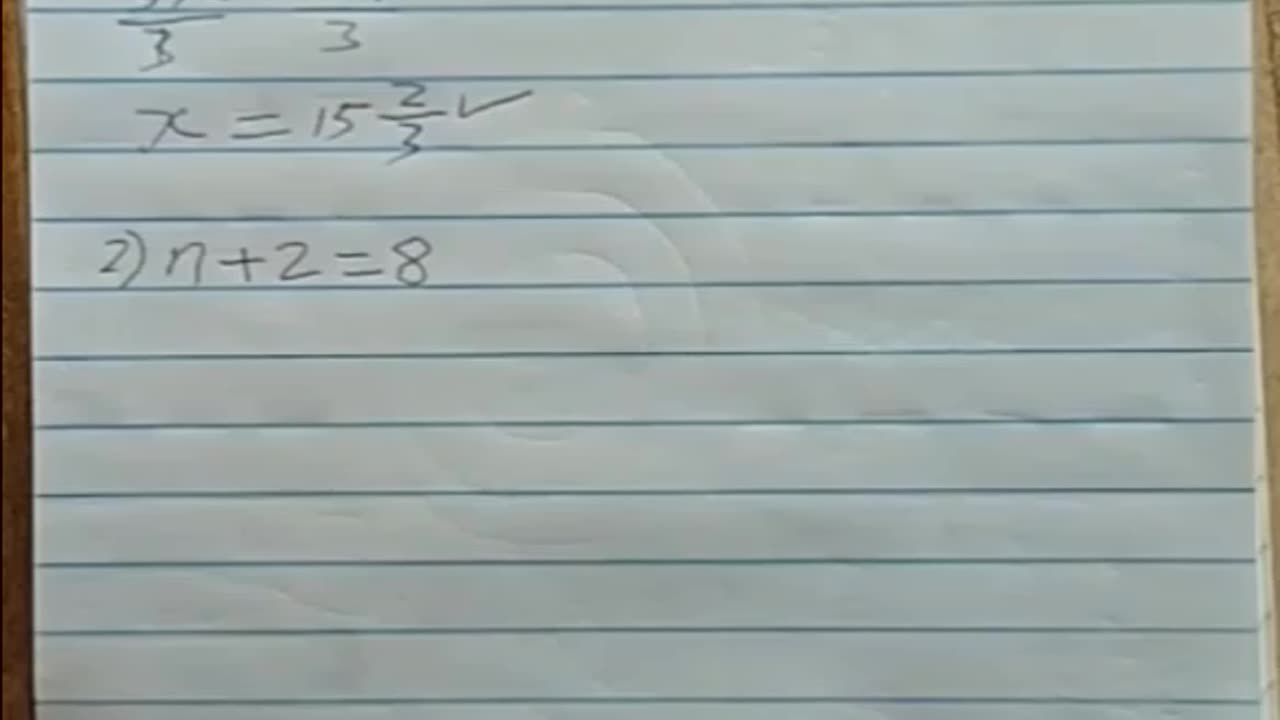 3 3
x = 15 2/3 ✓
2) n + 2 = 8